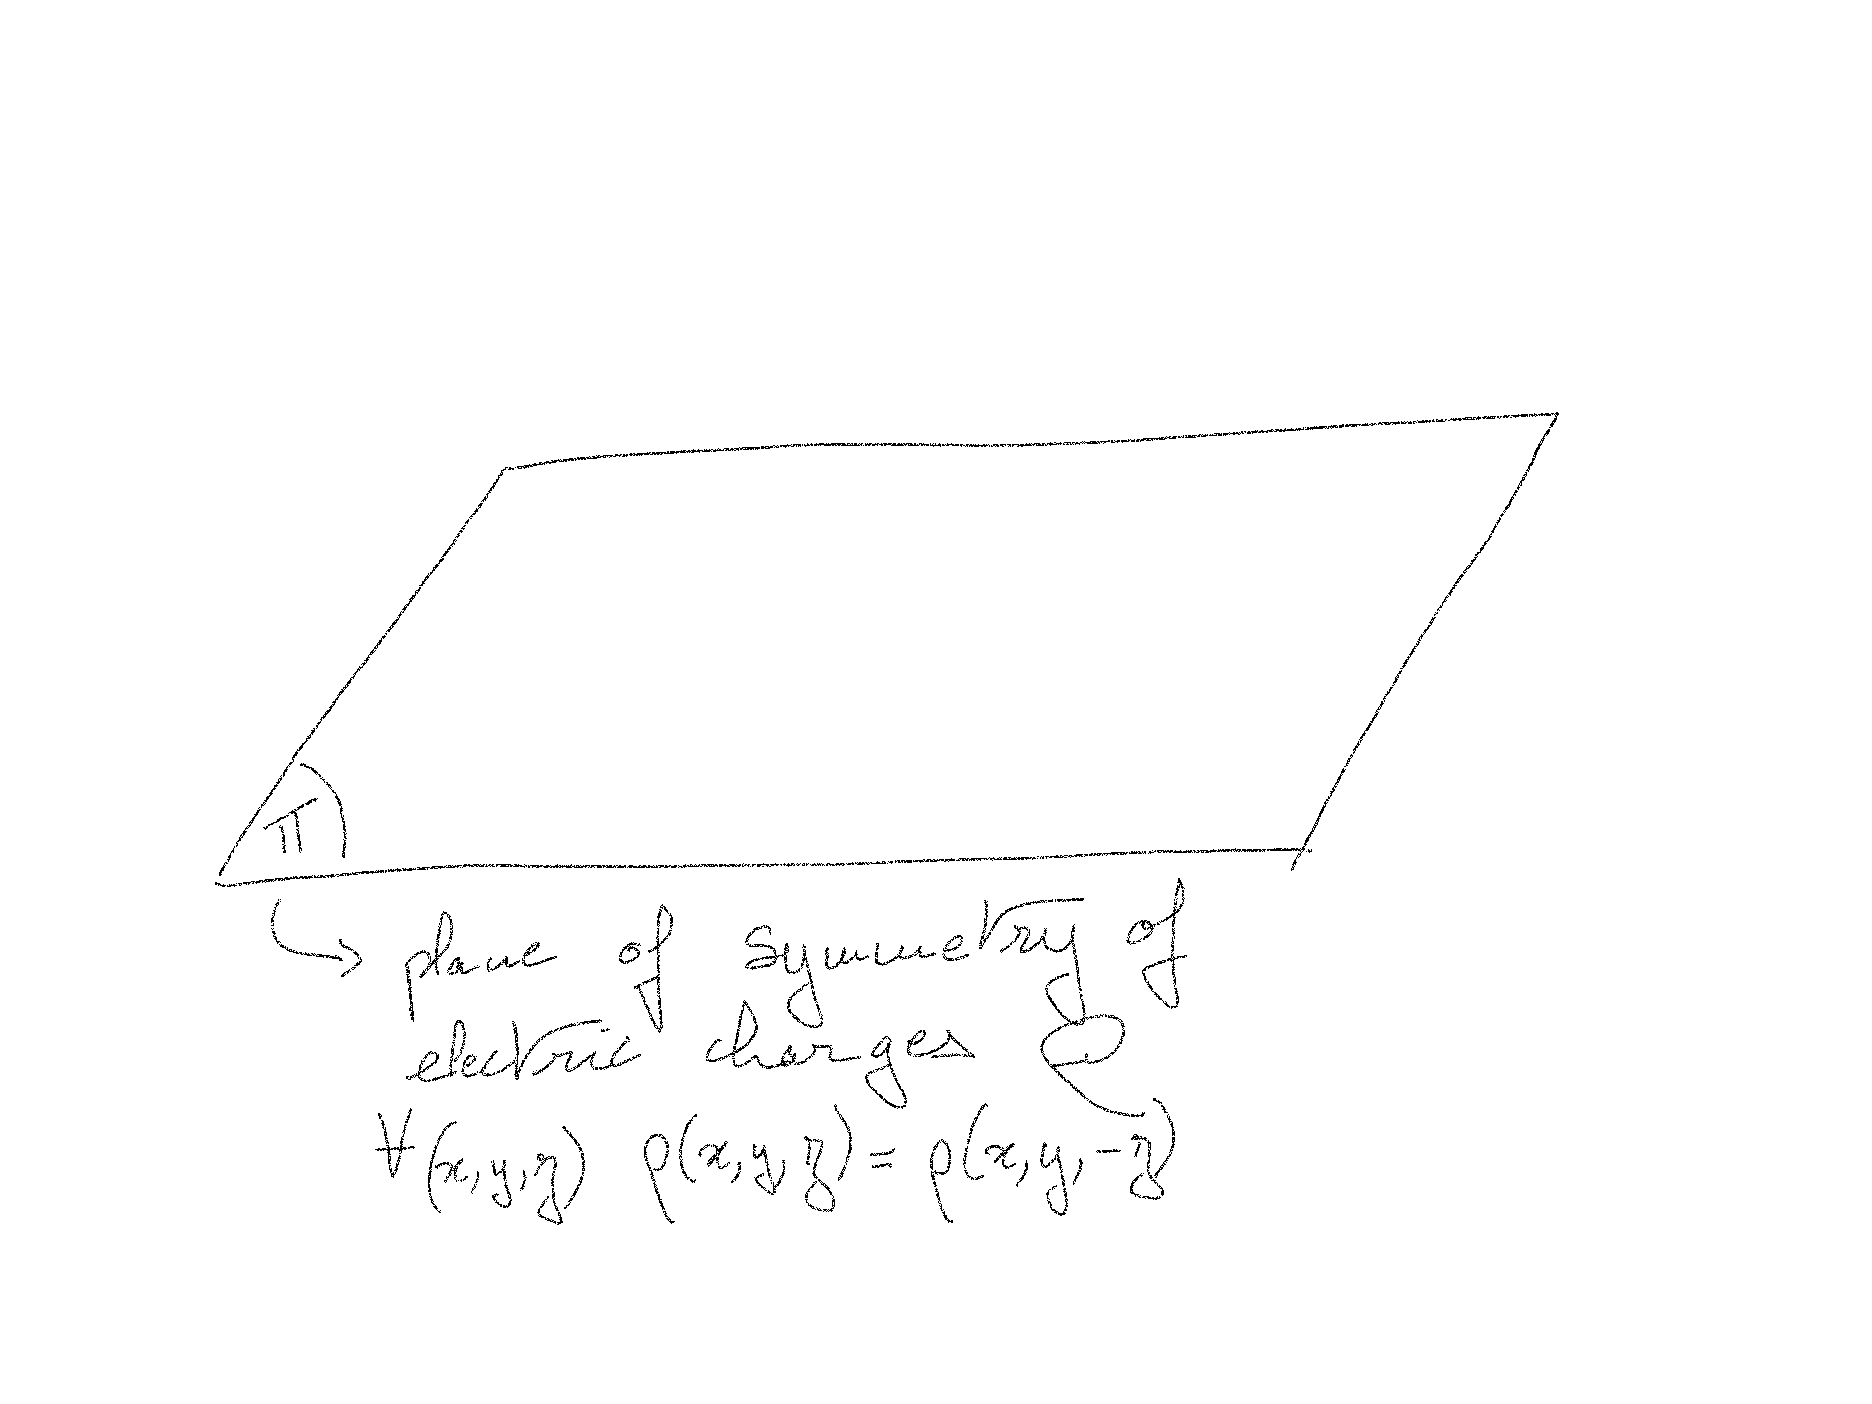 π
↳ plane of symmetry of
electric charges
∀(x,y,z) ρ(x,y,z) = ρ(x,y,-z)